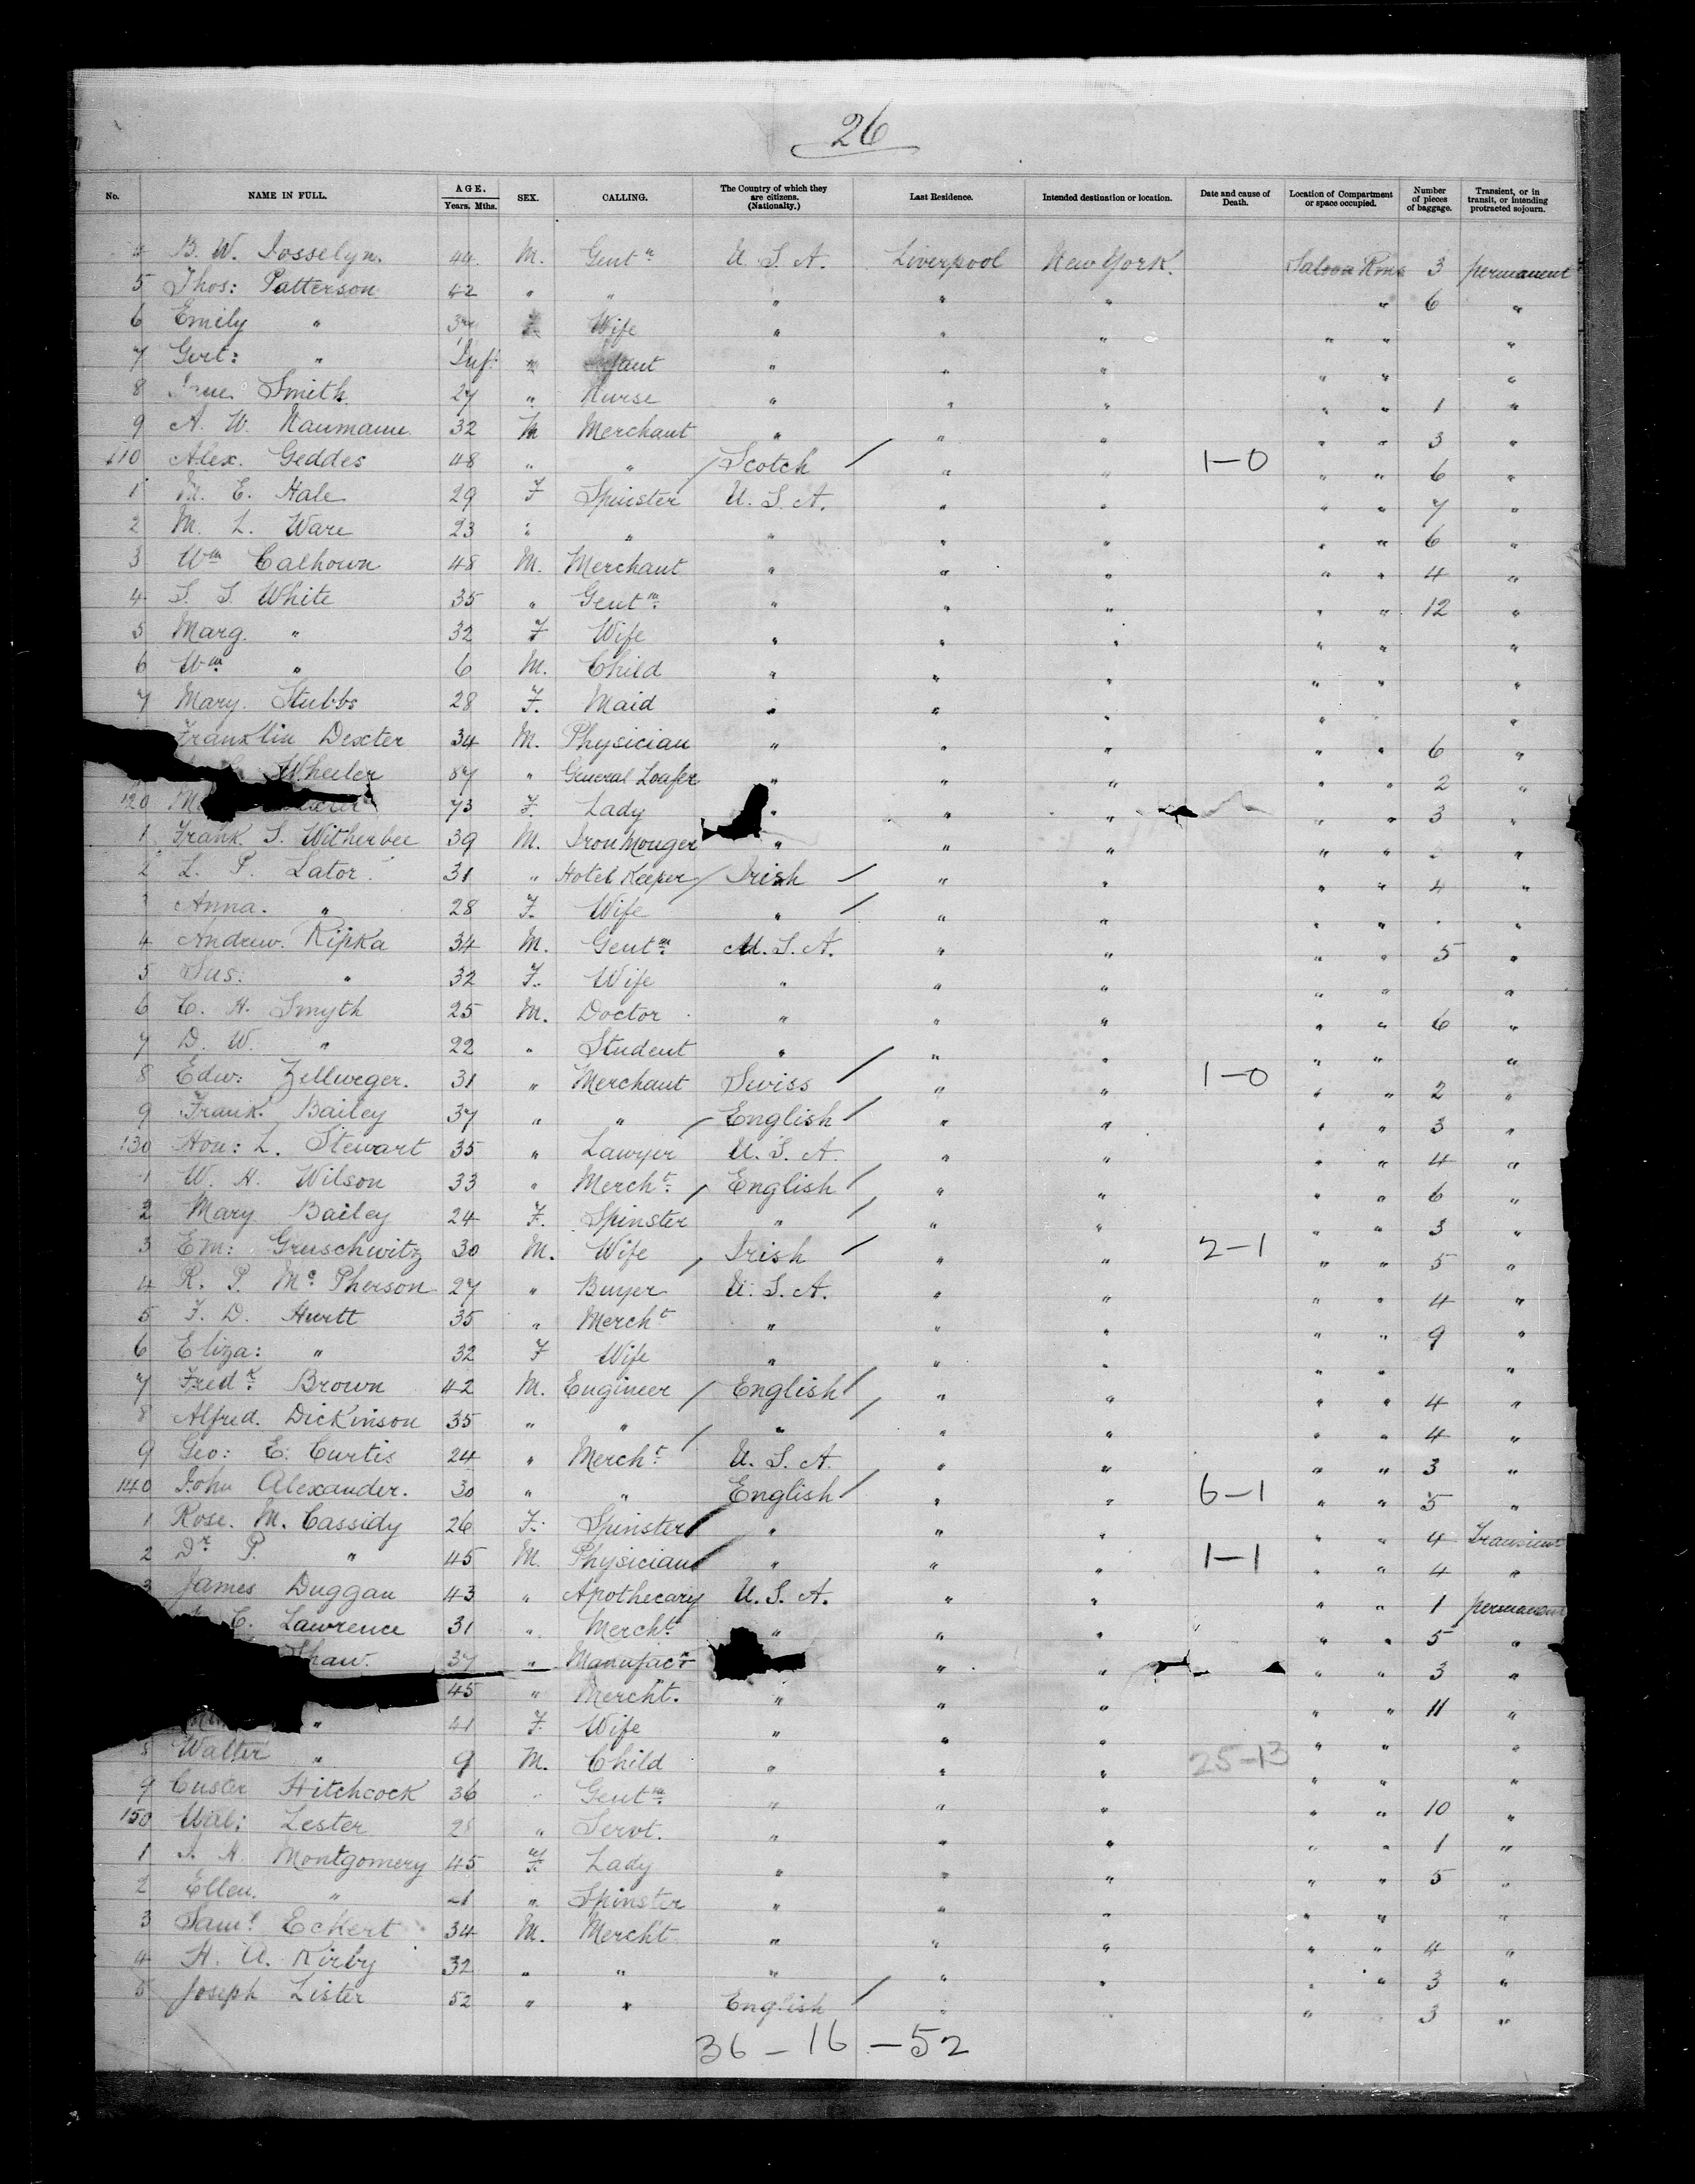 26
No. NAME IN FULL. AGE. Years. Mths. SEX. CALLING. The Country of which they are citizens. (Nationality.) Last Residence. Intended destination or location. Date and cause of Death. Location of Compartment or space occupied. Number of pieces of baggage. Transient, or in transit, or intending protracted sojourn.
4 B. W. Josselyn. 44 M. Gentn U. S. A. Liverpool New York. Saloon Rms 3 permanent
5 Thos: Patterson 42 " " " " " " 6 "
6 Emily " Wife " " " " " "
7 Gert: " Inf: " Infant " " " " " "
8 Smith 27 " Nurse " " " " " 1 "
9 A. W. Naumann 32 M Merchant " " " " " 3 "
110 Alex. Geddes 48 " " / Scotch / " " 1-0 " " 6 "
1 M. E. Hale 29 F Spinster U. S. A. " " " " 7 "
2 M. L. Ware 23 " " " " " " " 6 "
3 Wm Calhoun 48 M. Merchant " " " " " 4 "
4 S. S. White 35 " Gentm " " " " " 12 "
5 Marg. " 32 F Wife " " " " " "
6 Wm " 6 M. Child " " " " " "
7 Mary Stubbs 28 F. Maid " " " " " "
Franklin Dexter 34 M. Physician " " " " " 6 "
Wheeler 87 " General Loafer " " " " " 2 "
120 73 F. Lady " " " " " 3 "
1 Frank S. Witherbee 39 M. Iron Monger " " " " " "
2 L. P. Lator 31 " Hotel Keeper / Irish / " " " " 4 "
3 Anna. " 28 F. Wife " / " " " " "
4 Andrew. Ripka 34 M. Gentm U. S. A. " " " " 5 "
5 Sus: " 32 F. Wife " " " " " "
6 C. H. Smyth 25 M. Doctor " " " " " 6 "
7 D. W. " 22 " Student " " " " " "
8 Edw: Zellweger. 31 " Merchant Swiss / " " 1-0 " " 2 "
9 Frank. Bailey 37 " " / English / " " " " 3 "
130 Hon: L. Stewart 35 " Lawyer U. S. A. " " " " 4 "
1 W. H. Wilson 33 " Mercht / English / " " " " 6 "
2 Mary Bailey 24 F. Spinster " / " " " " 3 "
3 Em: Gruschwitz 30 M. Wife / Irish / " " 2-1 " " 5 "
4 R. P. McPherson 27 " Buyer U. S. A. " " " " 4 "
5 F. D. Hurtt 35 " Mercht " " " " " 9 "
6 Eliza: " 32 F Wife " " " " " "
7 Fredk Brown 42 M. Engineer / English / " " " " 4 "
8 Alfred. Dickinson 35 " " / " / " " " " 4 "
9 Geo: E. Curtis 24 " Mercht U. S. A. " " " " 3 "
140 John Alexander. 30 " " English / " " 6-1 " " 5 "
1 Rose. M. Cassidy 26 F. Spinster / " " " " " 4 Transient
2 Dr P. " 45 M. Physician / " " " 1-1 " " 4 "
3 James Duggan 43 " Apothecary U. S. A. " " " " 1 permanent
C. Lawrence 31 " Mercht " " " " " 5 "
Shaw. 37 " Manufacr " " " " 3 "
45 " Mercht. " " " " " 11 "
" 41 F. Wife " " " " " "
8 Walter " 9 M. Child " " " 25-13 " " "
9 Custer Hitchcock 36 " Gentm " " " " " 10 "
150 Lester " Servt. " " " " " 1 "
1 H. Montgomery 45 F. Lady " " " " " 5 "
2 Ellen. " " Spinster " " " " " "
3 Saml Eckert 34 M. Mercht " " " " " 4 "
4 H. A. Kirby 32 " " " " " " " 3 "
5 Joseph Lister 52 " " English / " " " 3 "
36-16-52